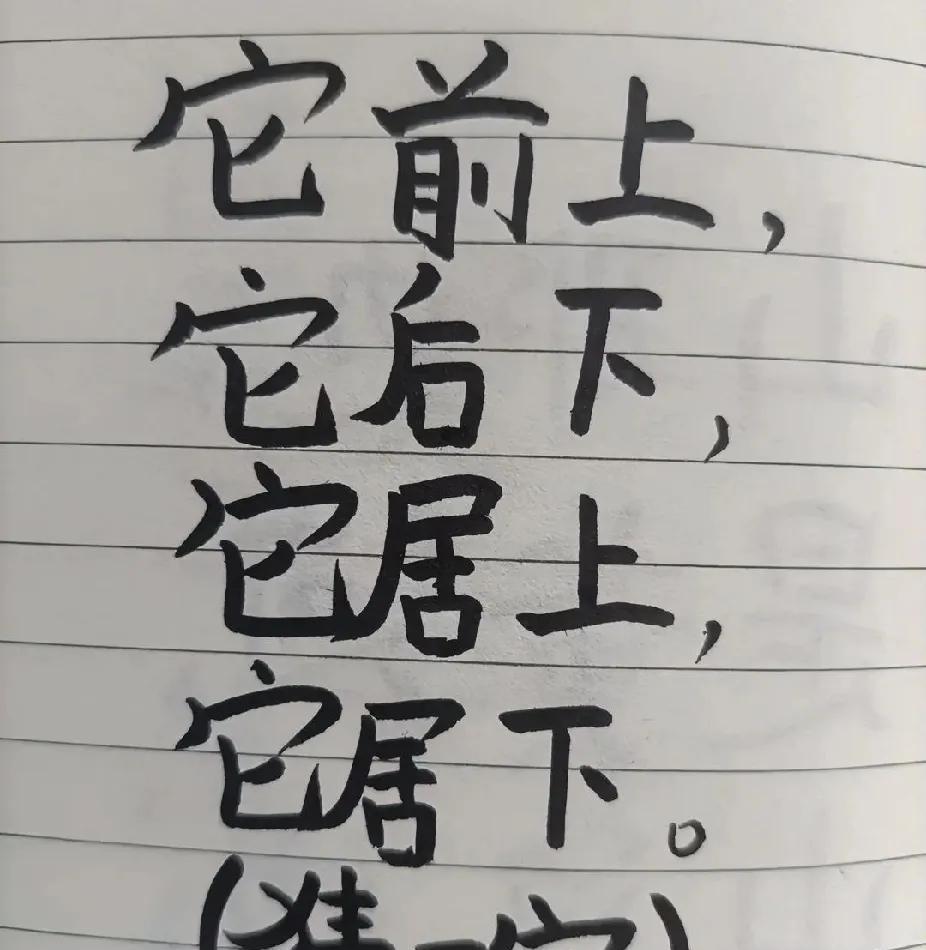 它前上，
它后下，
它居上，
它居下。
(猜一字)